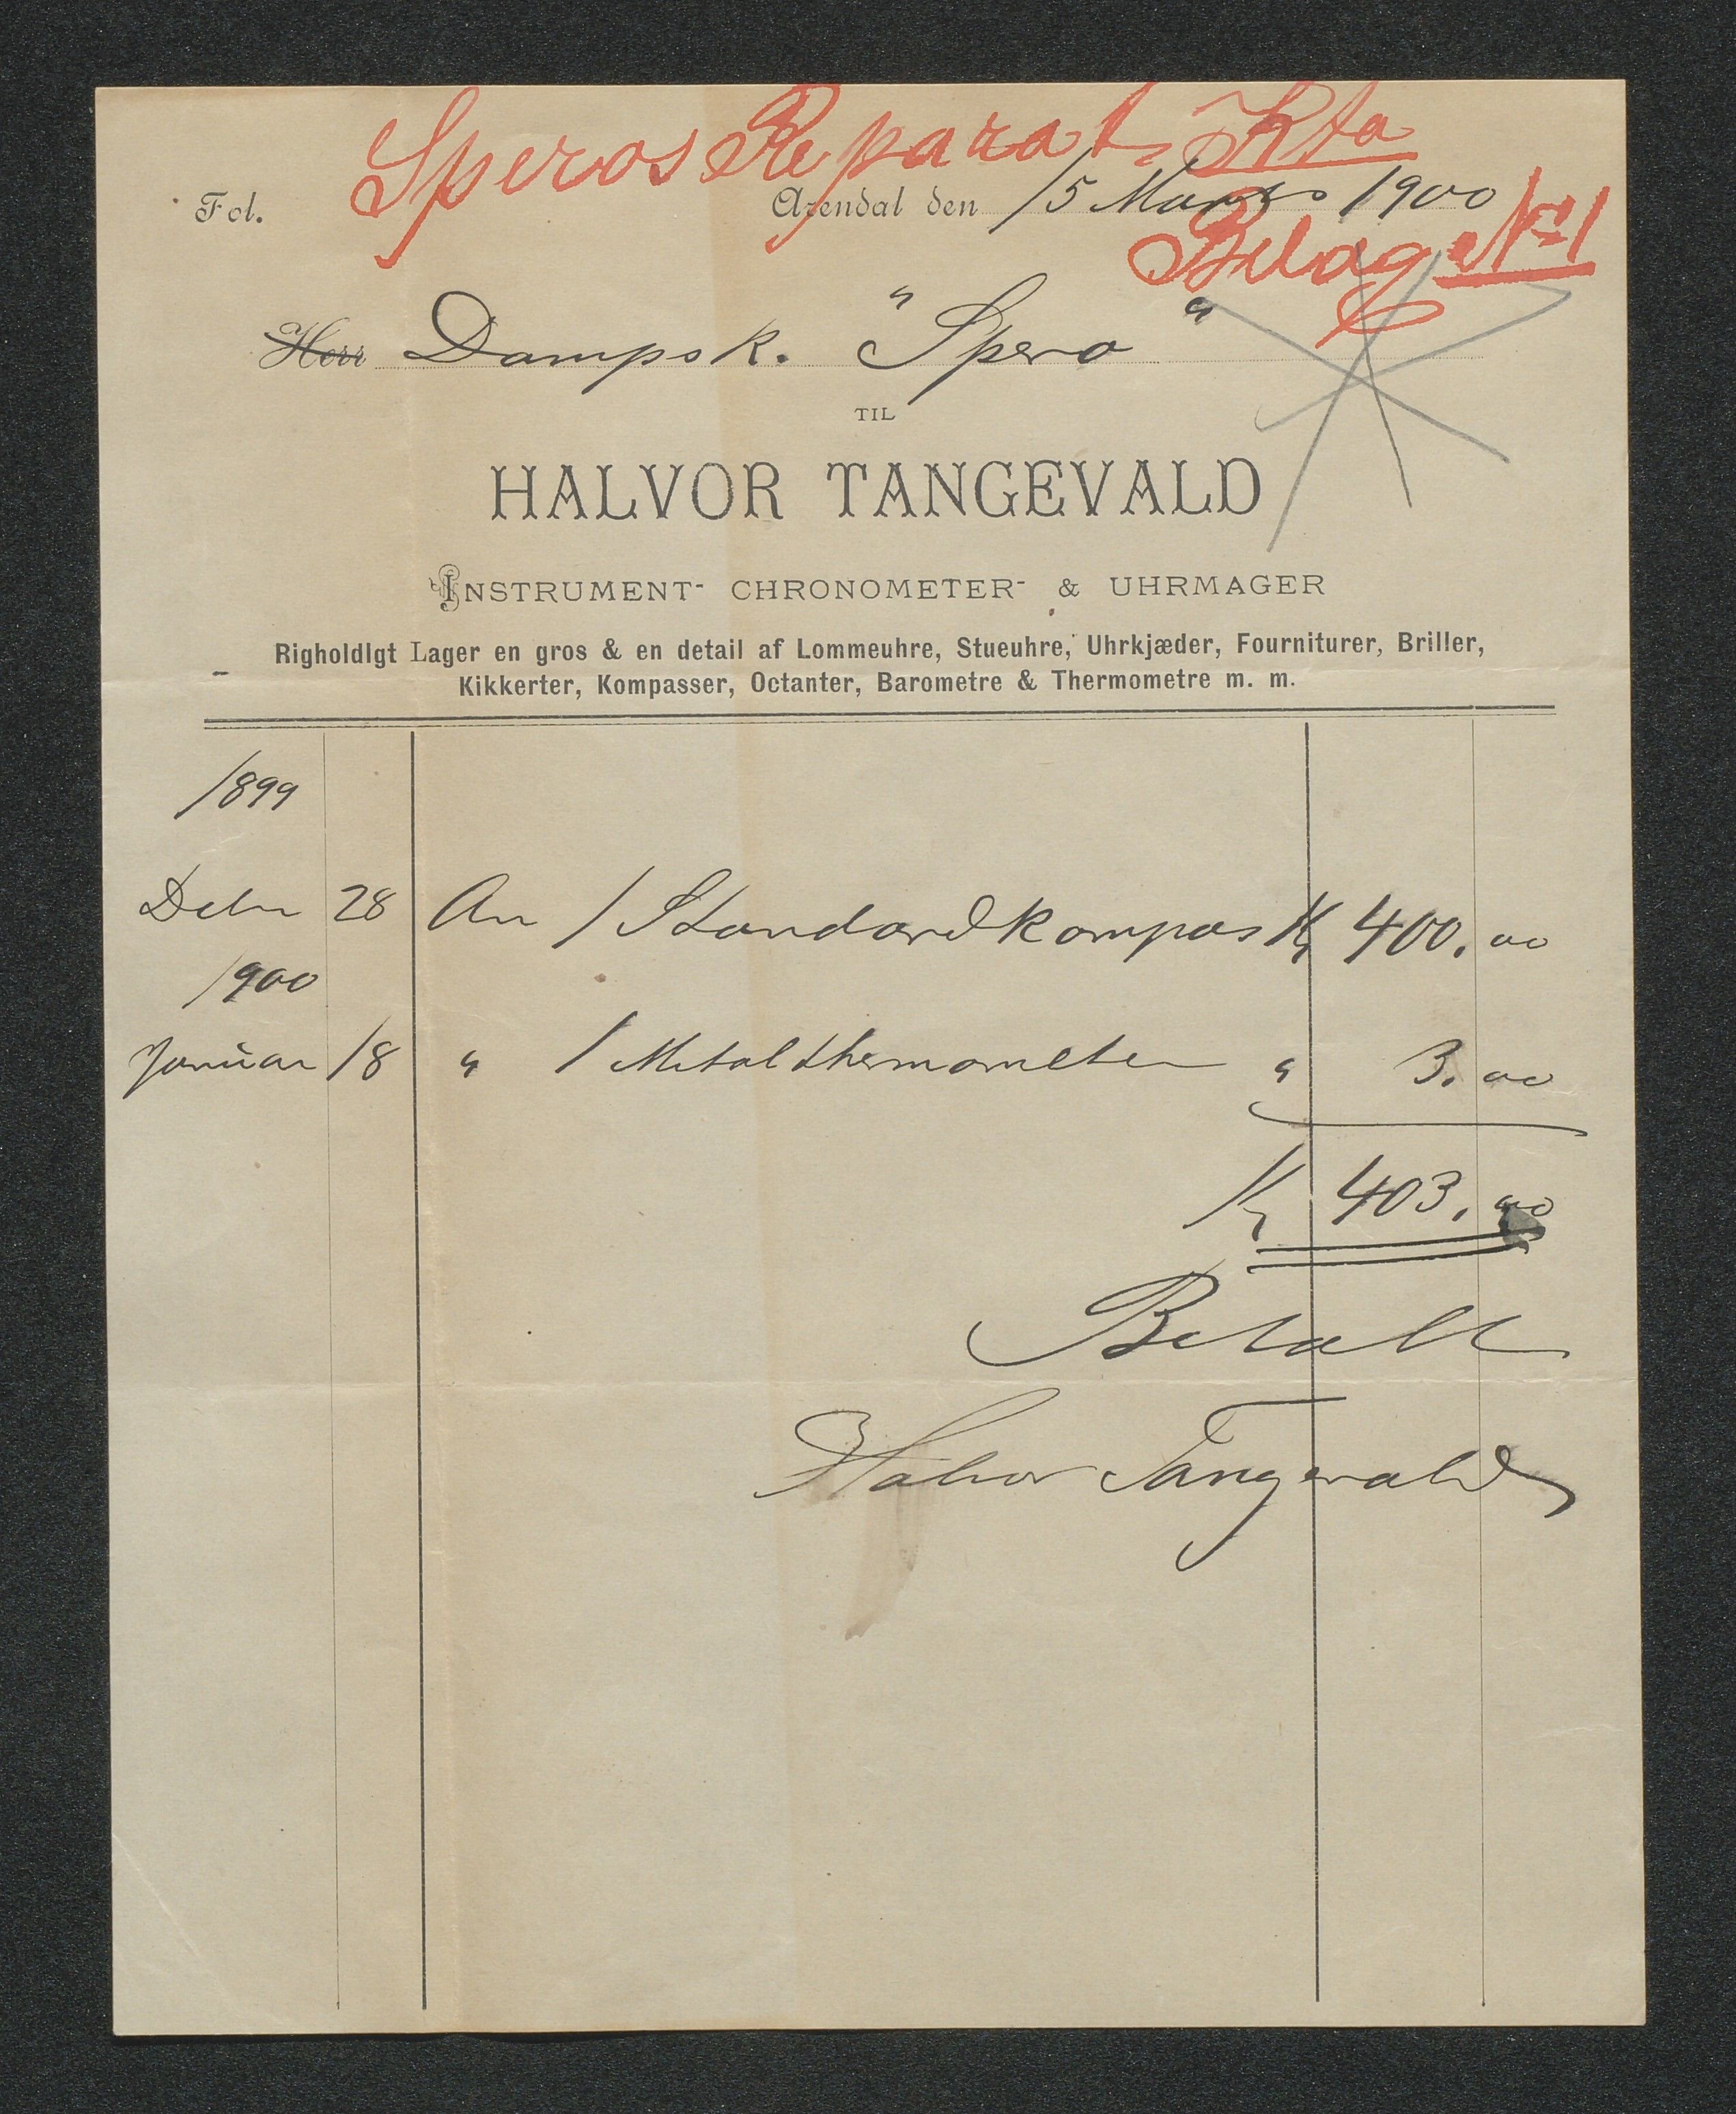 Speros Reparat. Kto
Fol. Arendal den 15 Marts 1900
Bilag No 1
Herr Dampsk. "Spero"
TIL
HALVOR TANGEVALD
INSTRUMENT- CHRONOMETER- & UHRMAGER
Righoldigt Lager en gros & en detail af Lommeuhre, Stueuhre, Uhrkjæder, Fourniturer, Briller,
Kikkerter, Kompasser, Octanter, Barometre & Thermometre m. m.
1899
Debr 28 An 1 Standardkompas Kr 400.00
1900
Januar 18 " 1 Metalthermometer " 3.00
Kr 403.00
Betalt
Halvor Tangevald